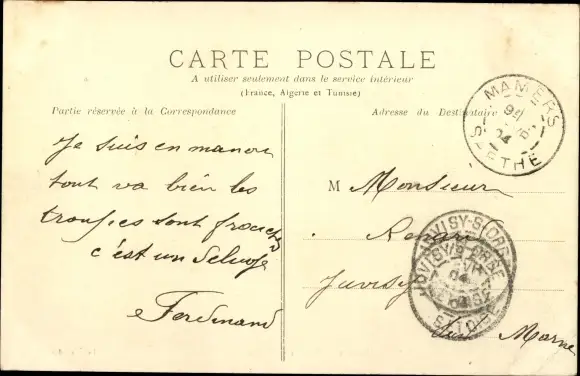 CARTE POSTALE
A utiliser seulement dans le service intérieur
(France, Algerie et Tunisie)
Partie réservée à la Correspondance
Adresse du Destinataire
MAMERS
SARTHE
Je suis en manœu
tout va bien les
troupes sont
c'est un
Ferdinand
M Monsieur
Renard
Juvisy
Marne
JUVISY-S-ORGE
S. ET OISE